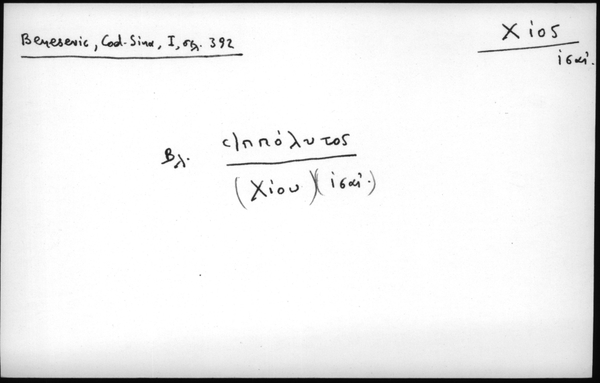 Benesevic, Cod. Sina, I, σελ. 392
Χίος
ἱσαί.
Βλ. Ἱππόλυτος
(Χίου) (ἱσαί.)